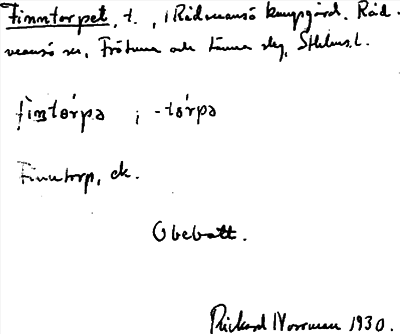 Finntorpet, t., i Rådmansö kungsgård. Råd-
mansö sn, Frötuna och Länna skg, Sthlms l.
fìntórpa ; -tórpa
Finntorp, ek.
Obebott.
Rickard Norrman 1930.